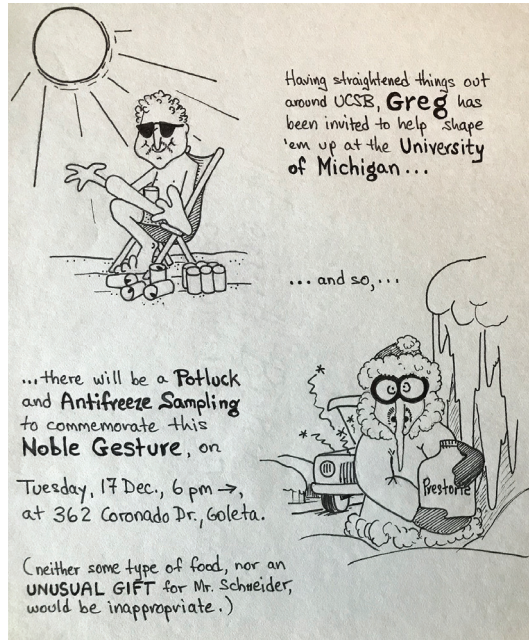 Having straightened things out
around UCSB, Greg has
been invited to help shape
'em up at the University
of Michigan...
...and so,...
...there will be a Potluck
and Antifreeze Sampling
to commemorate this
Noble Gesture, on
Tuesday, 17 Dec., 6 pm →,
at 362 Coronado Dr., Goleta.
(neither some type of food, nor an
UNUSUAL GIFT for Mr. Schneider,
would be inappropriate.)
Prestone